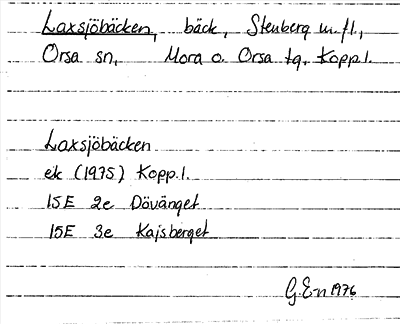 Laxsjöbäcken, bäck, Stenberg m.fl.,
Orsa sn, Mora o. Orsa tg. Kopp.l.
Laxsjöbäcken
ek (1975) Kopp.l.
15E 2e Dövänget
15E 3e Kajsberget
G.En 1976